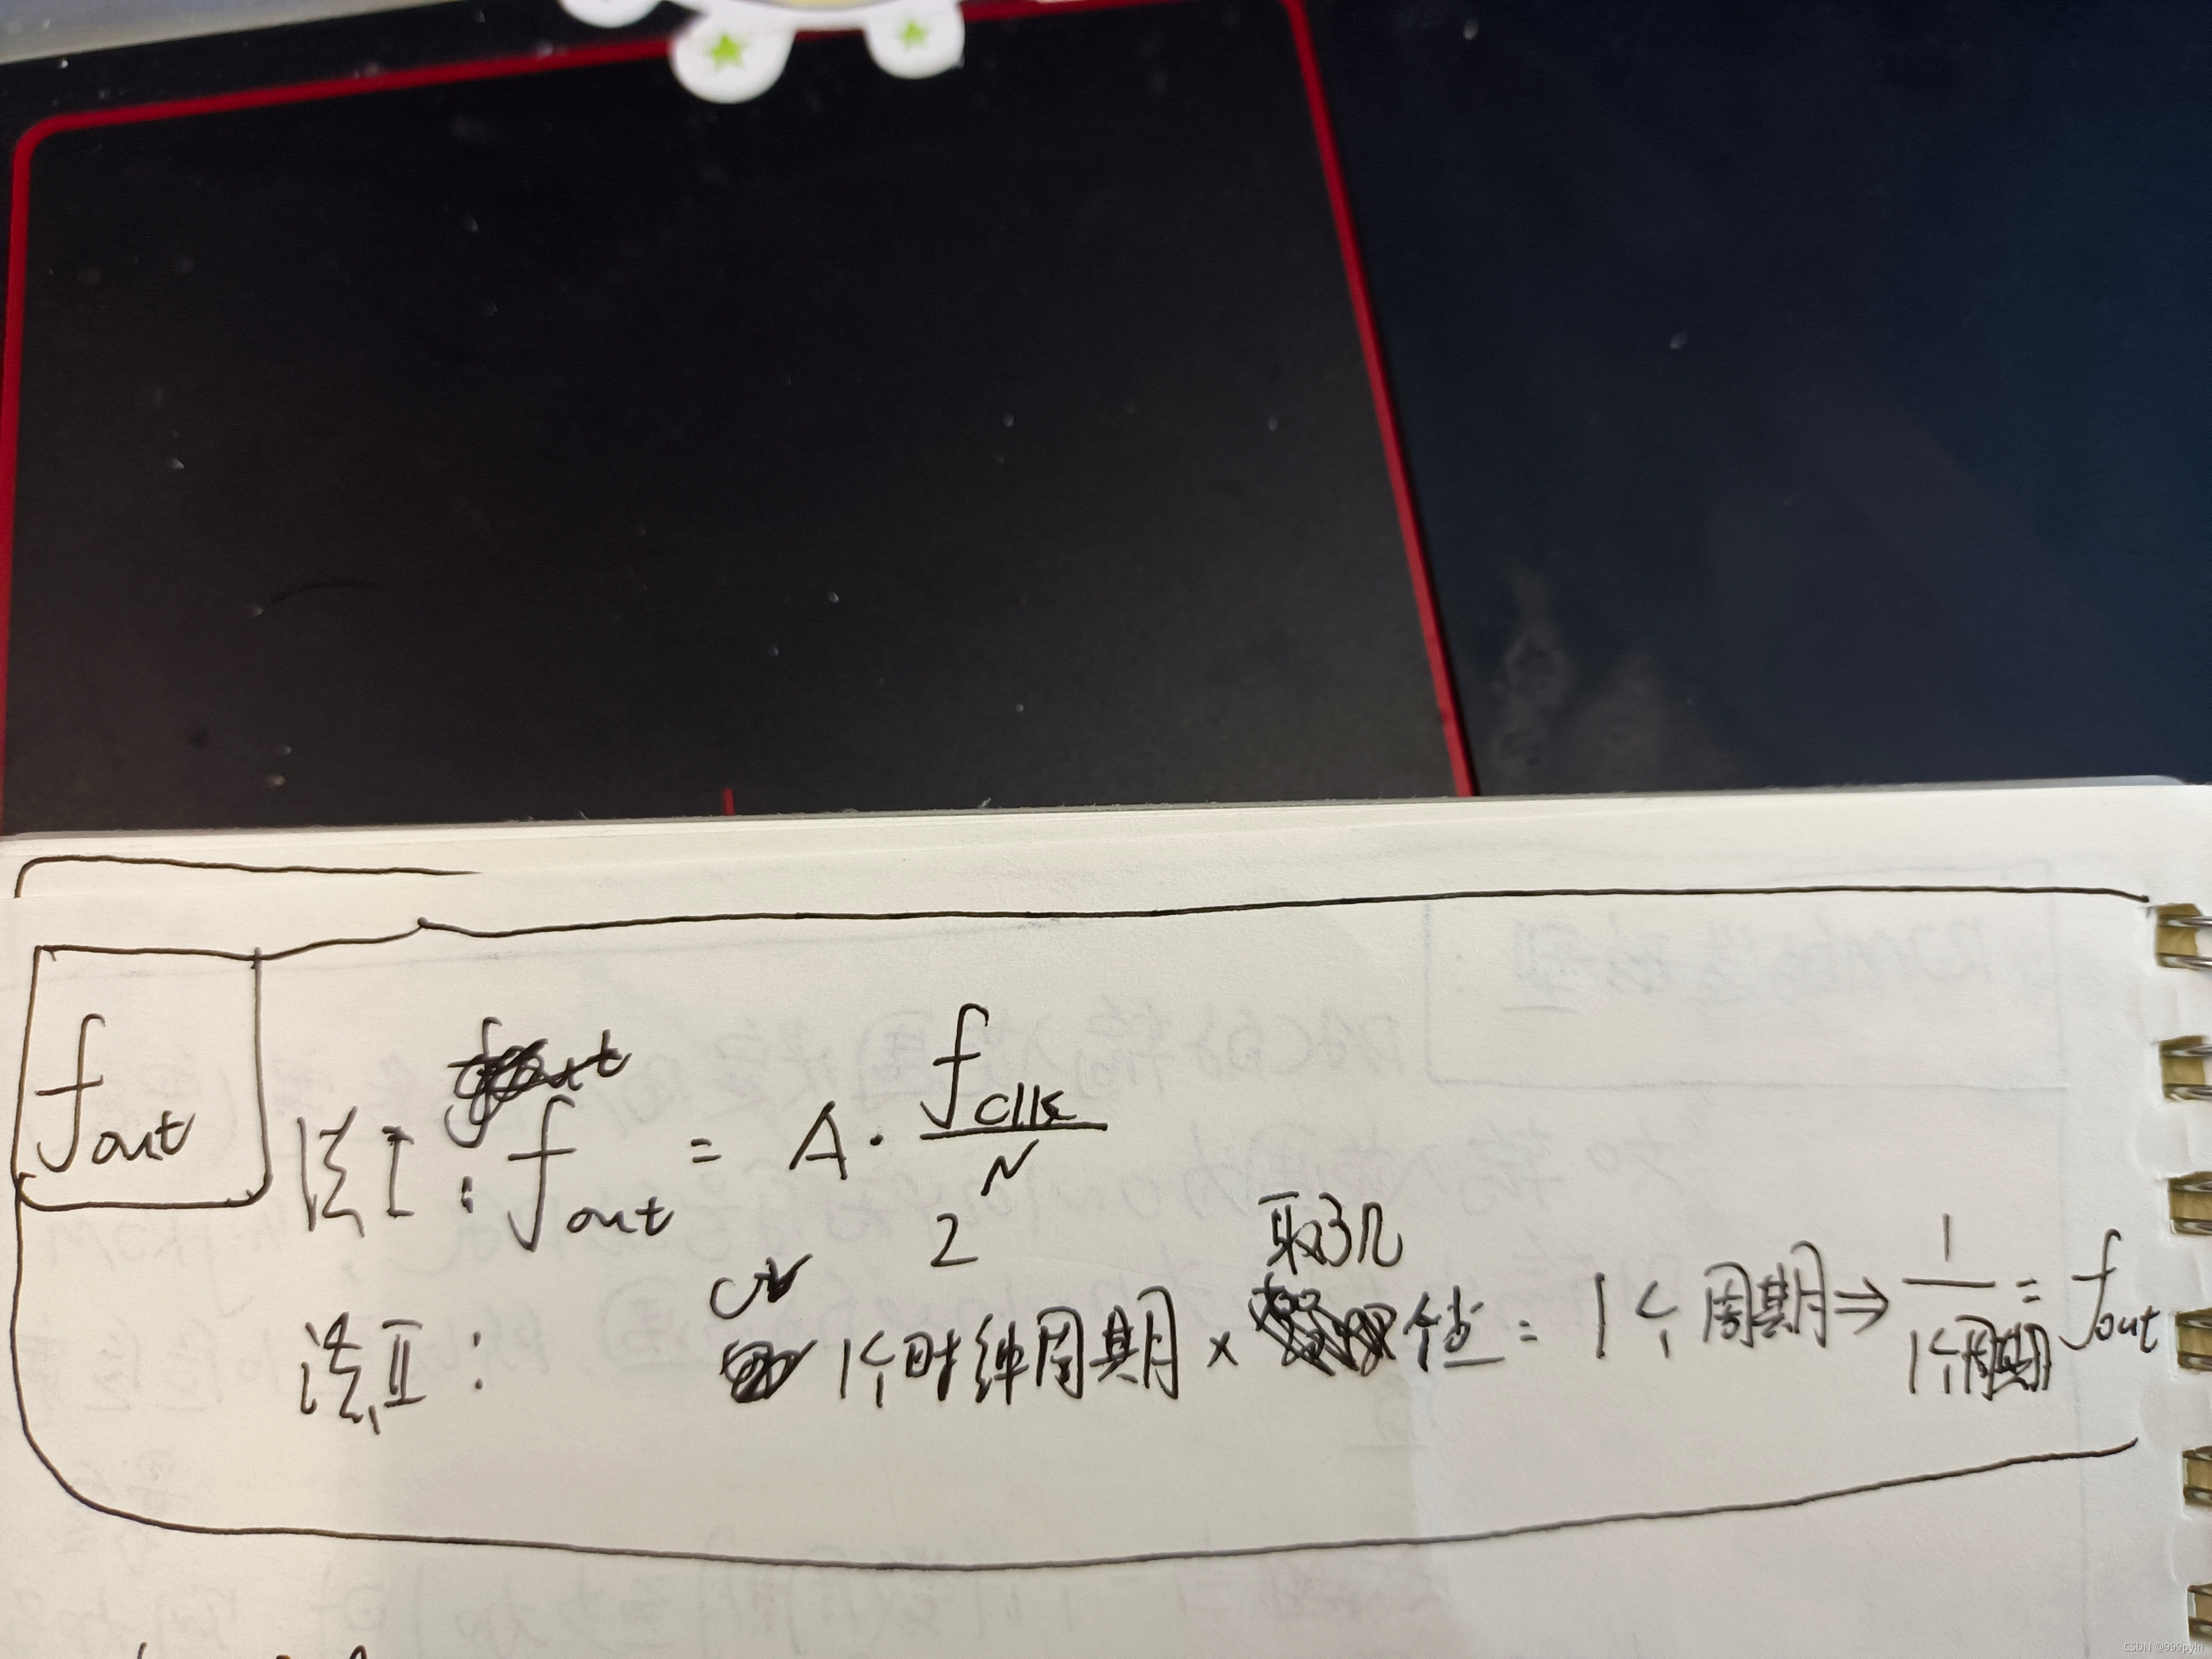 fout
法I:fout = A·fclk/2^N
法Ⅱ: 1个时钟周期×取了几个值=1个周期⇒1/1个周期=fout
CSDN @999pyln